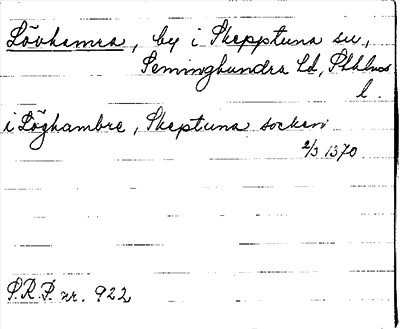 Lövhamra, by i Skepptuna sn,
Seminghundra hd, Sthlms
l.
i Løghambre, Skeptuna socken
2/3 1370
S.R.P. nr. 922